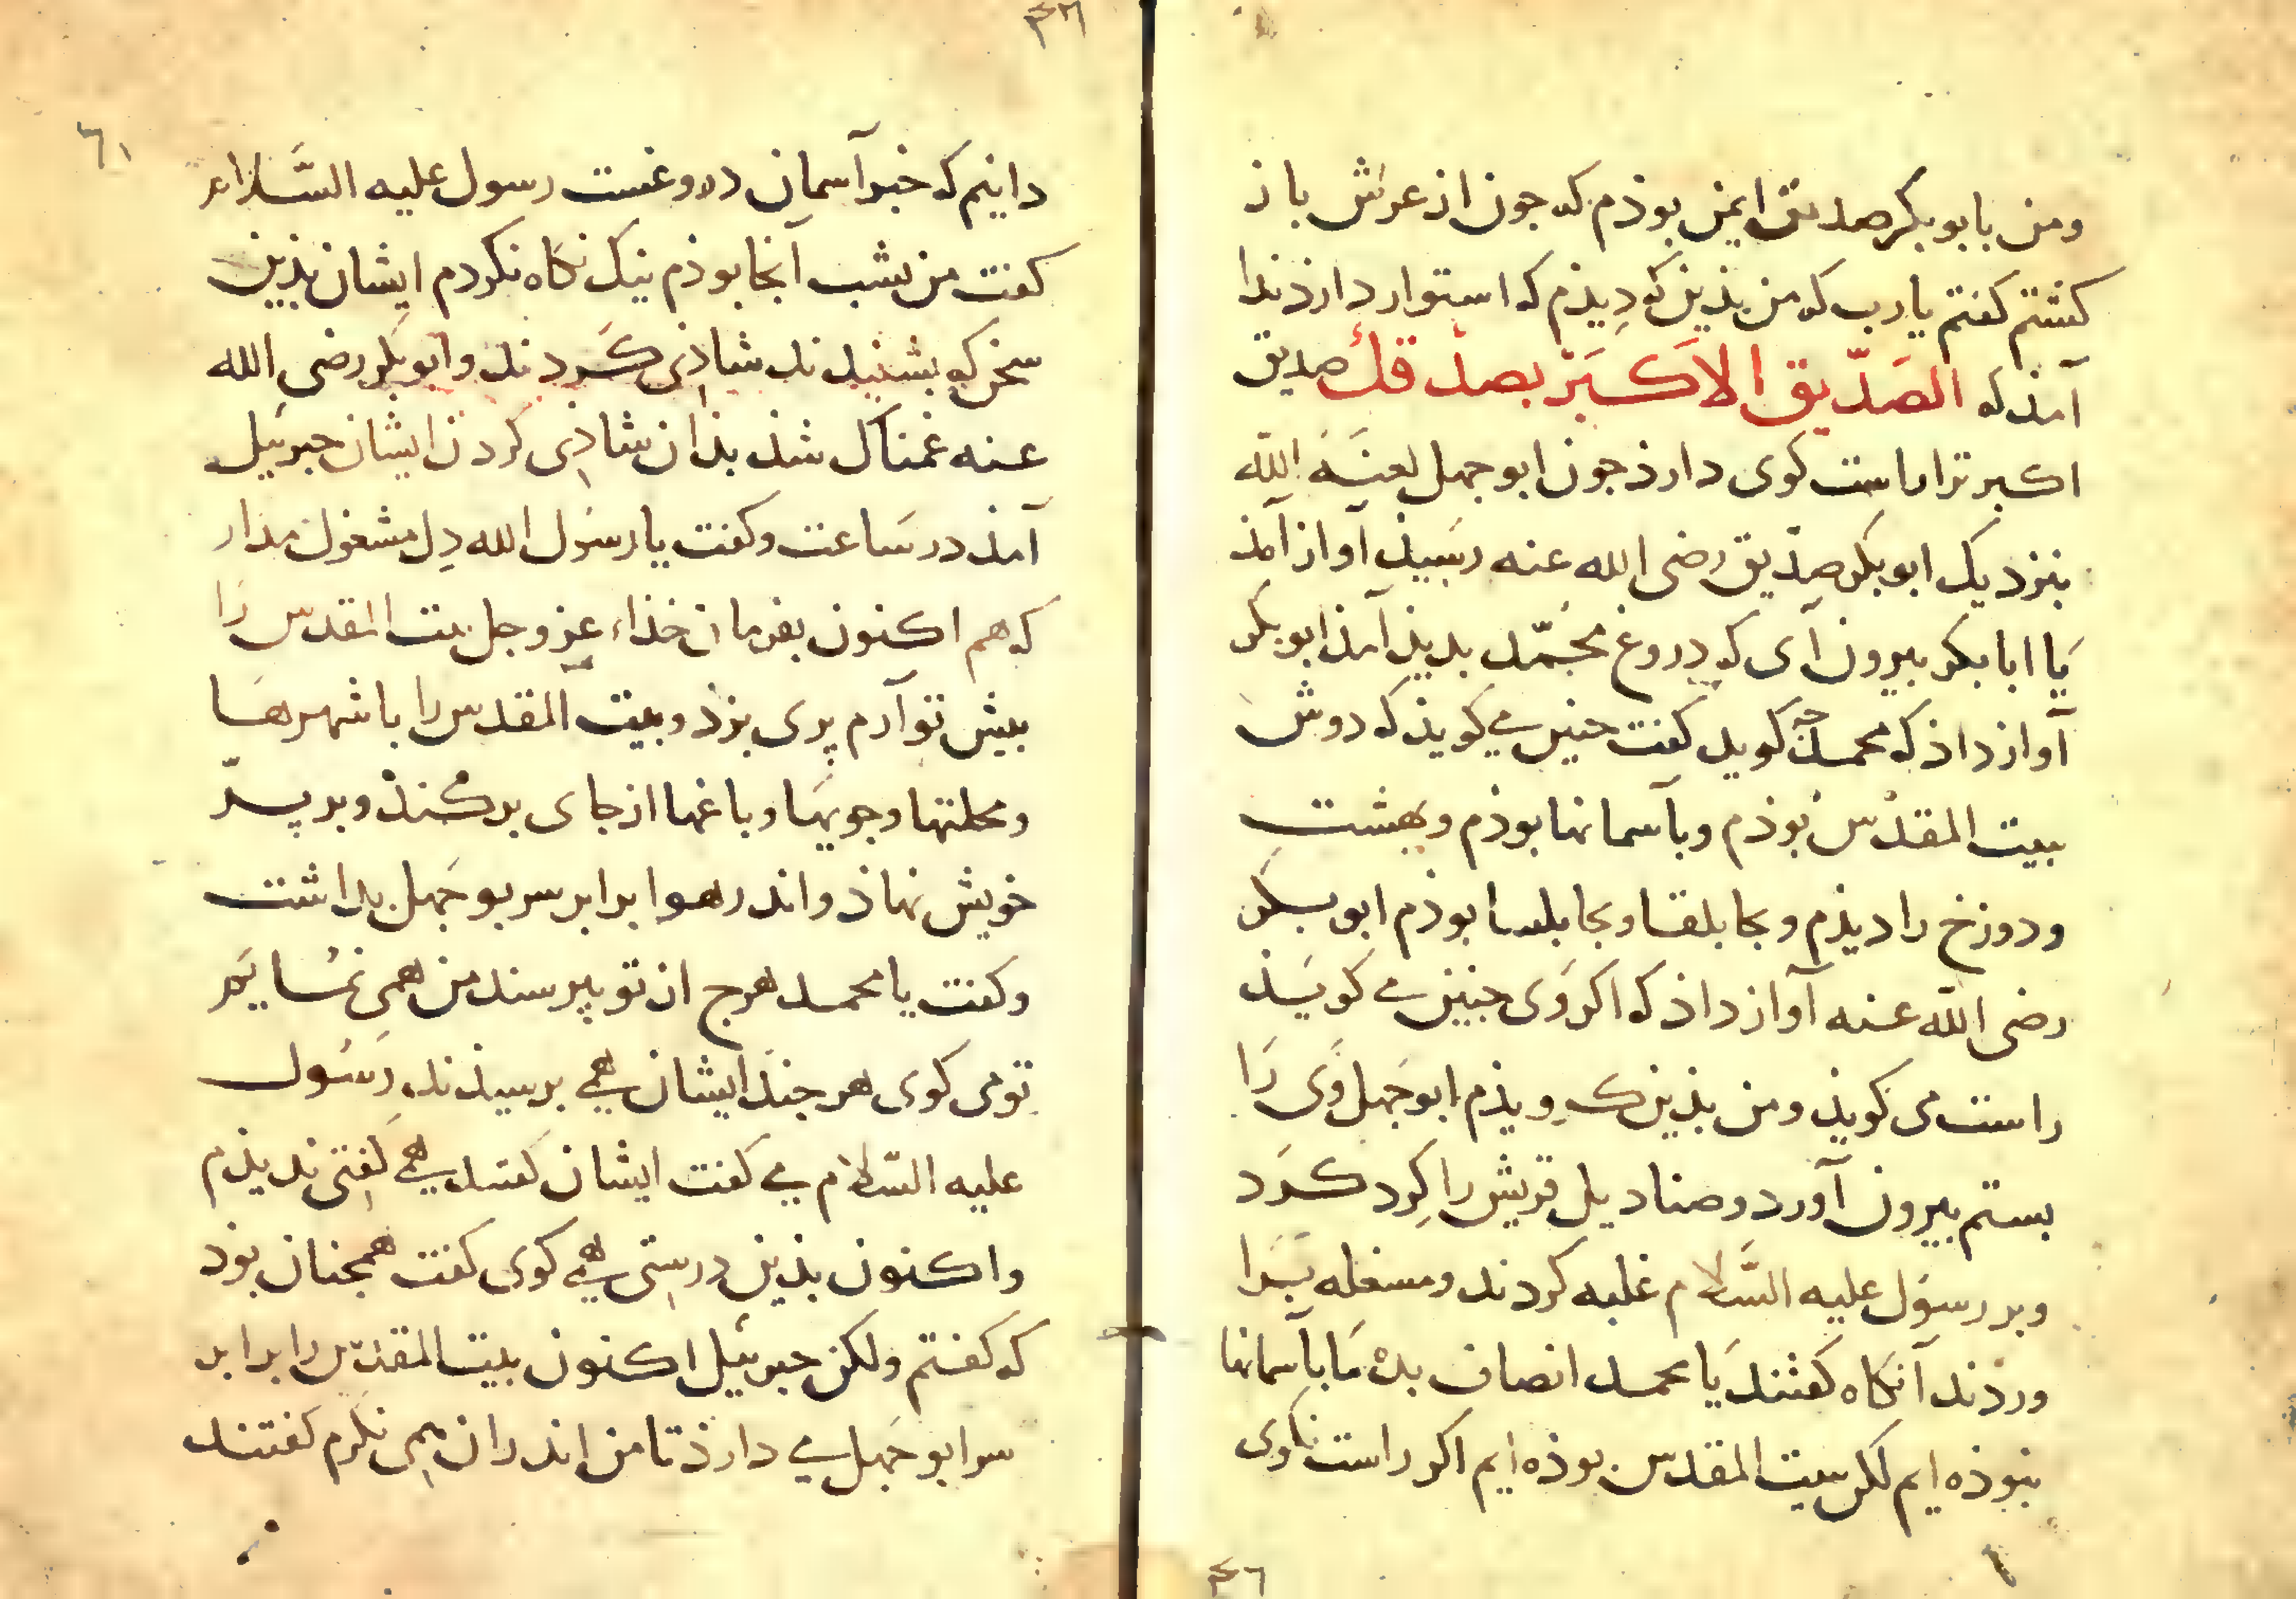 ومن بابوبکر صدیق ایمن بوذم که جون از عرش باز
کشتم کفتم یارب که من بذین کودیذم که استوار دارذ ندا
آمذ که الصدّیق الاکبر یصدّقك صدیق
اکبر ترا راست کوی دارذ جون ابوجهل لعنه الله
بنزدیک ابوبکر صدّیق رضی الله عنه رسیذ آواز آمذ
یا ابابکر بیرون آی که دروغ محمّد بدیذ آمذ ابوبکر
آواز داذ که محمد جه کوید کفت جنین می کویذ که دوش
ببیت المقدس بوذم وبآسمانها بوذم وبهشت
ودوزخ را دیذم وبجابلقا وبجابلسا بوذم ابوبکر
رضی الله عنه آواز داذ که اکر وی جنین می کویذ
راست می کویذ ومن بذین کرویذم ابوجهل وی را
بستم بیرون آورد وصنادیل قریش را کرد کرد
وبر رسول علیه السّلام غلبه کردند ومشغله برا
وردند آنکاه کفتند یا محمد انصاف بده ما بآسمانها
نبوذه ایم لکن ببیت المقدس بوذه ایم اکر راست نکوی
٣٦
٣٦
٦١
دانیم که خبر آسمان دروغست رسول علیه السّلام
کفت من بشب آنجا بوذم نیک نکاه نکردم ایشان بذین
سخن که بشنیدند شاذی کردند وابوبکر رضی الله
عنه غمناک شذ بذان شاذی کردن ایشان جبرئیل
آمذ در ساعت وکفت یا رسول الله دل مشغول مدار
که هم اکنون بفرمان خذاء عزوجل بیت المقدس را
بیش تو آرم پری بزد وبیت المقدس را با شهرها
ومحلتها وجویها وباغها از جای برکند وبر پر
خویش نهاذ واندر هوا برابر سر بوجهل بداشت
وکفت یا محمد هرج از تو بپرسند من همی نمایم
تو می کوی هر جند ایشان همی برسیذند رسول
علیه السّلام می کفت ایشان کفتند همی کفتی ندیذم
واکنون بذین درستی همی کوی کفت همجنان بوذ
که کفتم ولکن جبرئیل اکنون بیت المقدّس را برابر
سر ابوجهل می دارذ تا من اندران همی نکرم کفتند